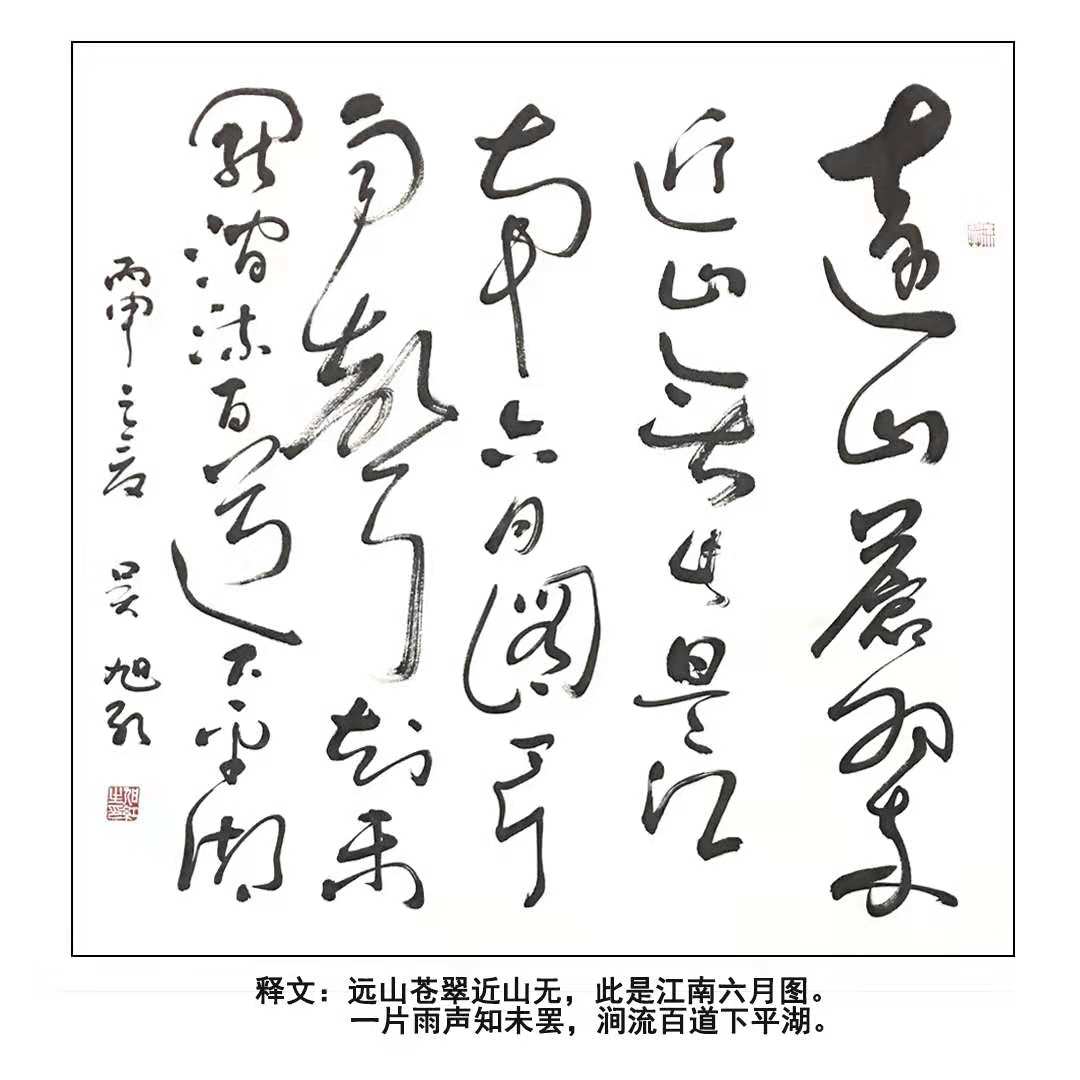 遠山蒼翠
近山無此是江
南六月圖一片
雨聲知未
罷澗流百道下平湖
丙申之夏 吴旭
释文：远山苍翠近山无，此是江南六月图。
一片雨声知未罢，涧流百道下平湖。